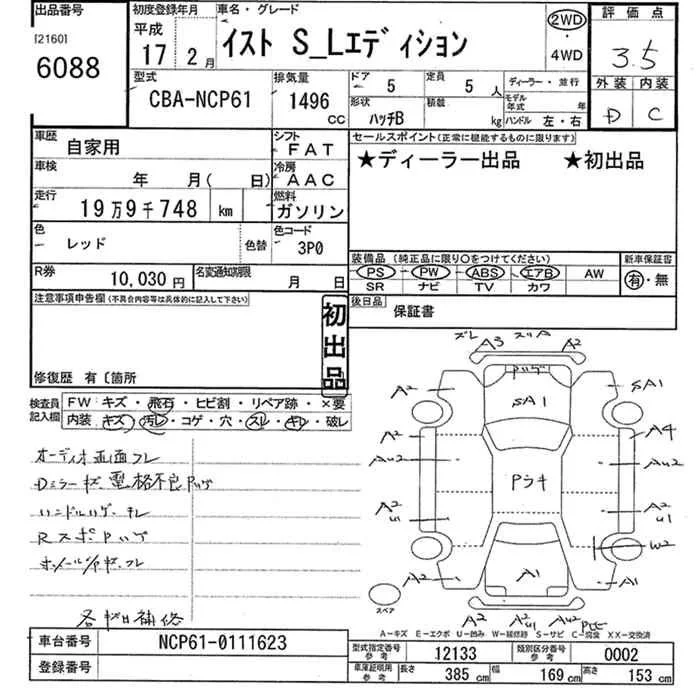 出品番号
[2160]
6088
初度登録年月
平成
17 2月
車名・グレード
イスト S_Lエディション
2WD
・
4WD
評価点
3.5
外装 内装
D C
型式
CBA-NCP61
排気量
1496
CC
ドア
5
定員
5 人
形状
ハッチB
積載
kg
ディーラー・並行
モデル年式 年
ハンドル 左・右
車歴
自家用
シフト
FAT
車検
年 月( 日)
冷房
AAC
走行
19万9千748 km
燃料
ガソリン
色
レッド
色替
色コード
3P0
R券
10,030円
名変通知期限
月 日
セールスポイント(正常に機能するものに限ります)
★ディーラー出品 ★初出品
装備品(純正品に限り○をつけてください)
PS PW ABS エアB AW
SR ナビ TV カワ
新車保証書
有・無
後日品
保証書
注意事項申告欄(不具合内容等は具体的に記入して下さい)
初出品
修復歴 有〔箇所
検査員記入欄
FW キズ・飛石・ヒビ割・リペア跡・×要
内装 キズ・汚レ・コゲ・穴・スレ・キレ・破レ
オーディオ画面フレ
Dミラーキズ電格不良ハゲ
ハンドルハゲ・キレ
各キズ目補修
ズレ スリA
A3 A2
ハゲ
A2 SA1 SA1
A2 A4
AU2 AU2
Pラキ
A2 A2
U1 U1
W2
A2 A1 A1
スペア
A2 A2 AU2
U1
A-キズ E-エクボ U-凹み W-補修跡 S-サビ C-腐食 XX-交換済
車台番号
NCP61-0111623
登録番号
型式指定番号
参考
12133
類別区分番号
参考
0002
車庫証明用
参考
長さ 385 cm 幅 169 cm 高さ 153 cm